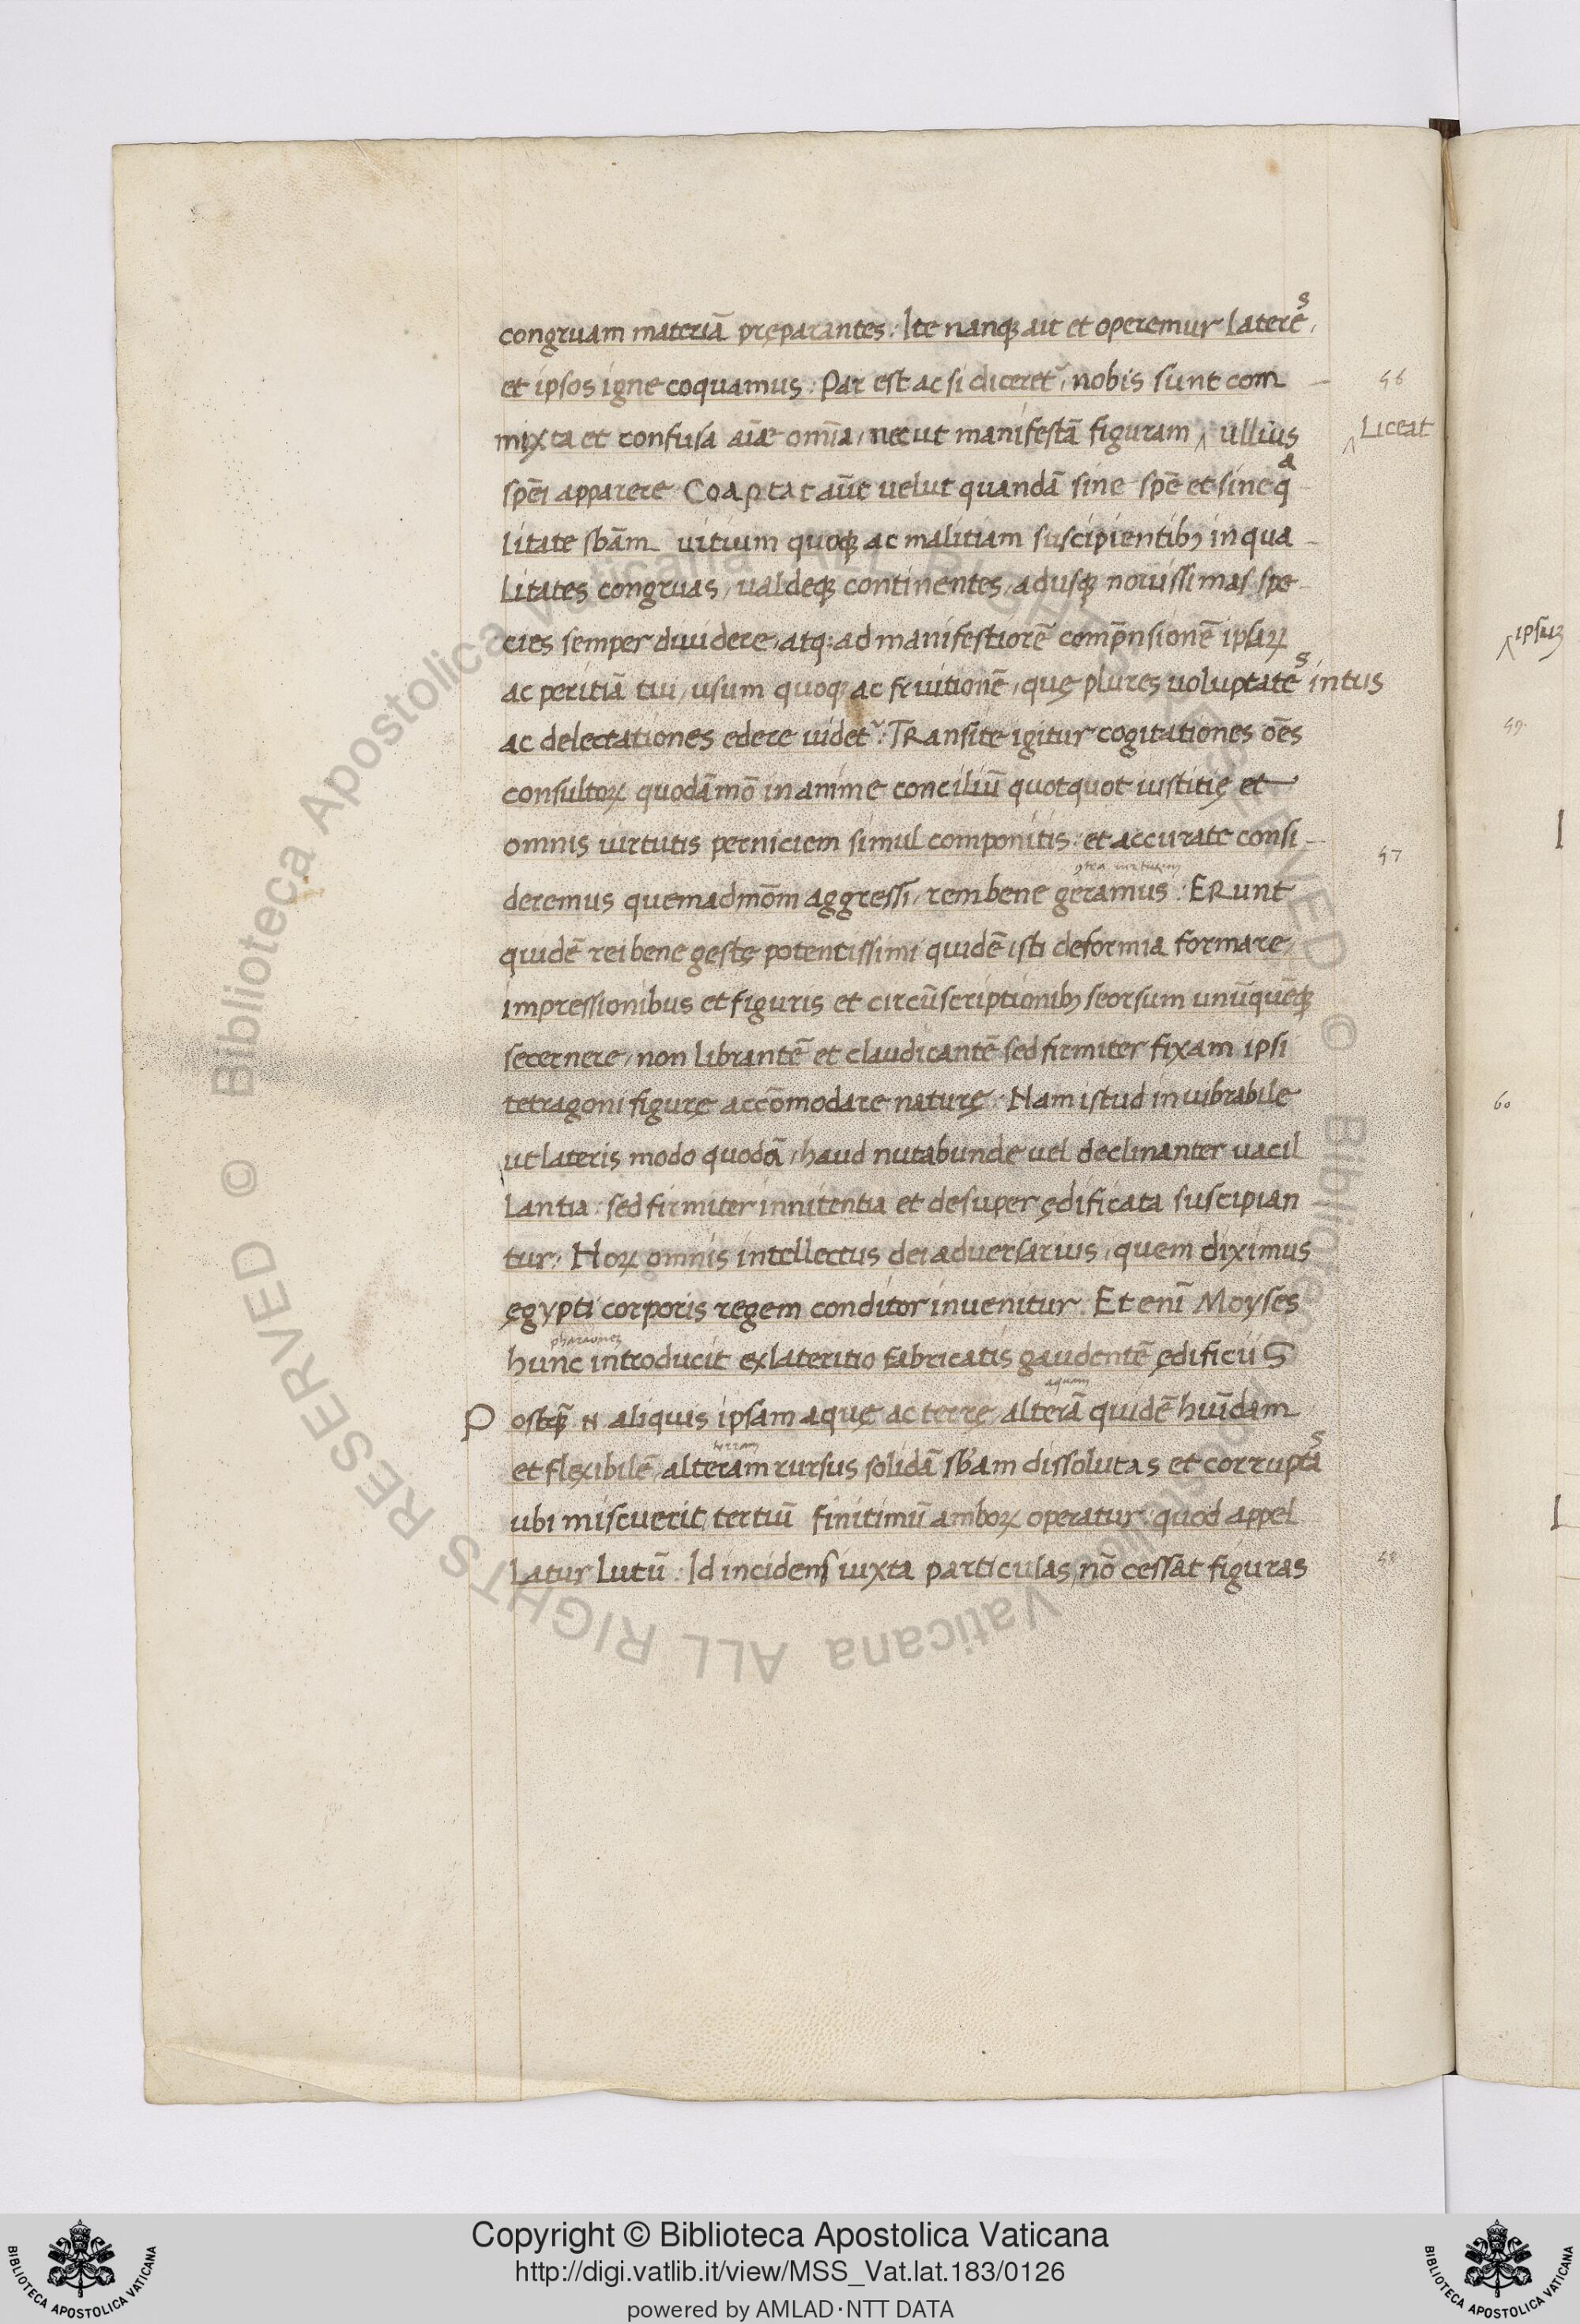 congruam materiā pręparantes: Ite nanq; ait et operemur lateres,
et ipsos igne coquamus: Par est ac si diceret᷑, nobis sunt com
56
mixta et confusa aīæ omīa, nec ut manifestā figuram ‸ ullius
‸ Liceat
spēi apparere Coaptat aūt uelut quandā sine spē et sine qa
litate sbām uitium quoq; ac malitiam suscipientib; in qua
litates congruas, ualdeq; continentes, adusq; nouissimas spe
cies semper diuidere, atq: ad manifestiorē compn̄sionē ipsaꝝ
ac peritiā tui, usum quoq; ac fruitionē, quę plures uoluptates intus
ac delectationes edere uidet᷑: TRansite igitur cogitationes oēs
consultoꝝ quodāmō in animę conciliū quotquot iustitię et
omnis uirtutis perniciem simul componitis: et accurate consi
57
deremus quemadmōm aggressi, rem bene geramus: ERunt
quidē rei bene gestę potentissimi quidē isti deformia formare,
impressionibus et figuris et circūscriptionib; seorsum unūquēq;
secernere, non librantē et claudicantē sed firmiter fixam ipsi
tetragoni figurę accōmodare naturę: Nam istud inuibrabile
ut lateris modo quodā, haud nutabunde uel declinanter uacil
lantia: sed firmiter innitentia et desuper ędificata suscipian
tur: Hoꝝ omnis intellectus dei aduersarius, quem diximus
ęgypti corporis regem conditor inuenitur. Et enī Moyses
pharaonem
hunc introducit ex lateritio fabricatis gaudentē ędificiiS
aquam
Postq̄ N aliquis ipsam aquę ac terrę, alterā quidē huīdam
terram
et flexibilē, alteram rursus solidā sbam dissolutas et corruptas
ubi miscuerit, tertiū finitimū amboꝝ operatur: quod appel
latur lutū: Id incidens iuxta particulas, nō cessat figuras
58
ipsuz
59
60
Copyright © Biblioteca Apostolica Vaticana
http://digi.vatlib.it/view/MSS_Vat.lat.183/0126
powered by AMLAD·NTT DATA
BIBLIOTECA APOSTOLICA VATICANA
BIBLIOTECA APOSTOLICA VATICANA
© Biblioteca Apostolica Vaticana ALL RIGHTS RESERVED © Biblioteca Apostolica Vaticana ALL RIGHTS RESERVED